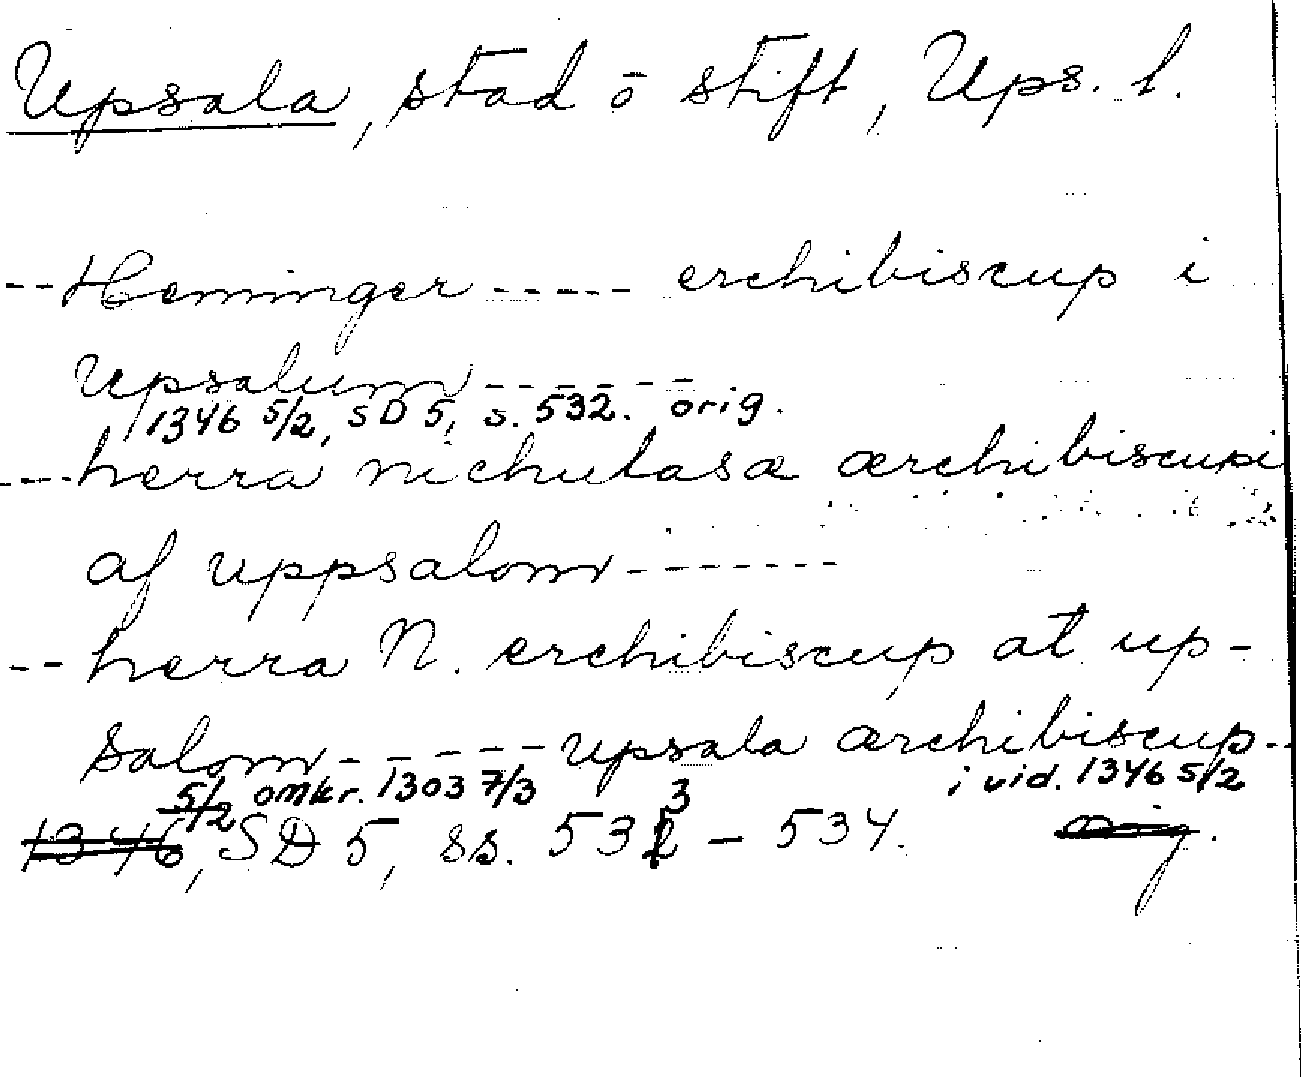 Upsala, stad o stift, Ups. l.
-- Heminger ----- erchibiscup i
Upsalum ------
1346 5/2, SD 5, s. 532. orig.
--- herra nichulasa ærchibiscupi
af uppsalom -------
-- herra N. erchibiscup at up-
salom ----- upsala ærchibiscup --
5/2 omkr. 1303 7/3 i vid. 1346 5/2
1346, SD 5, ss. 533 - 534. orig.